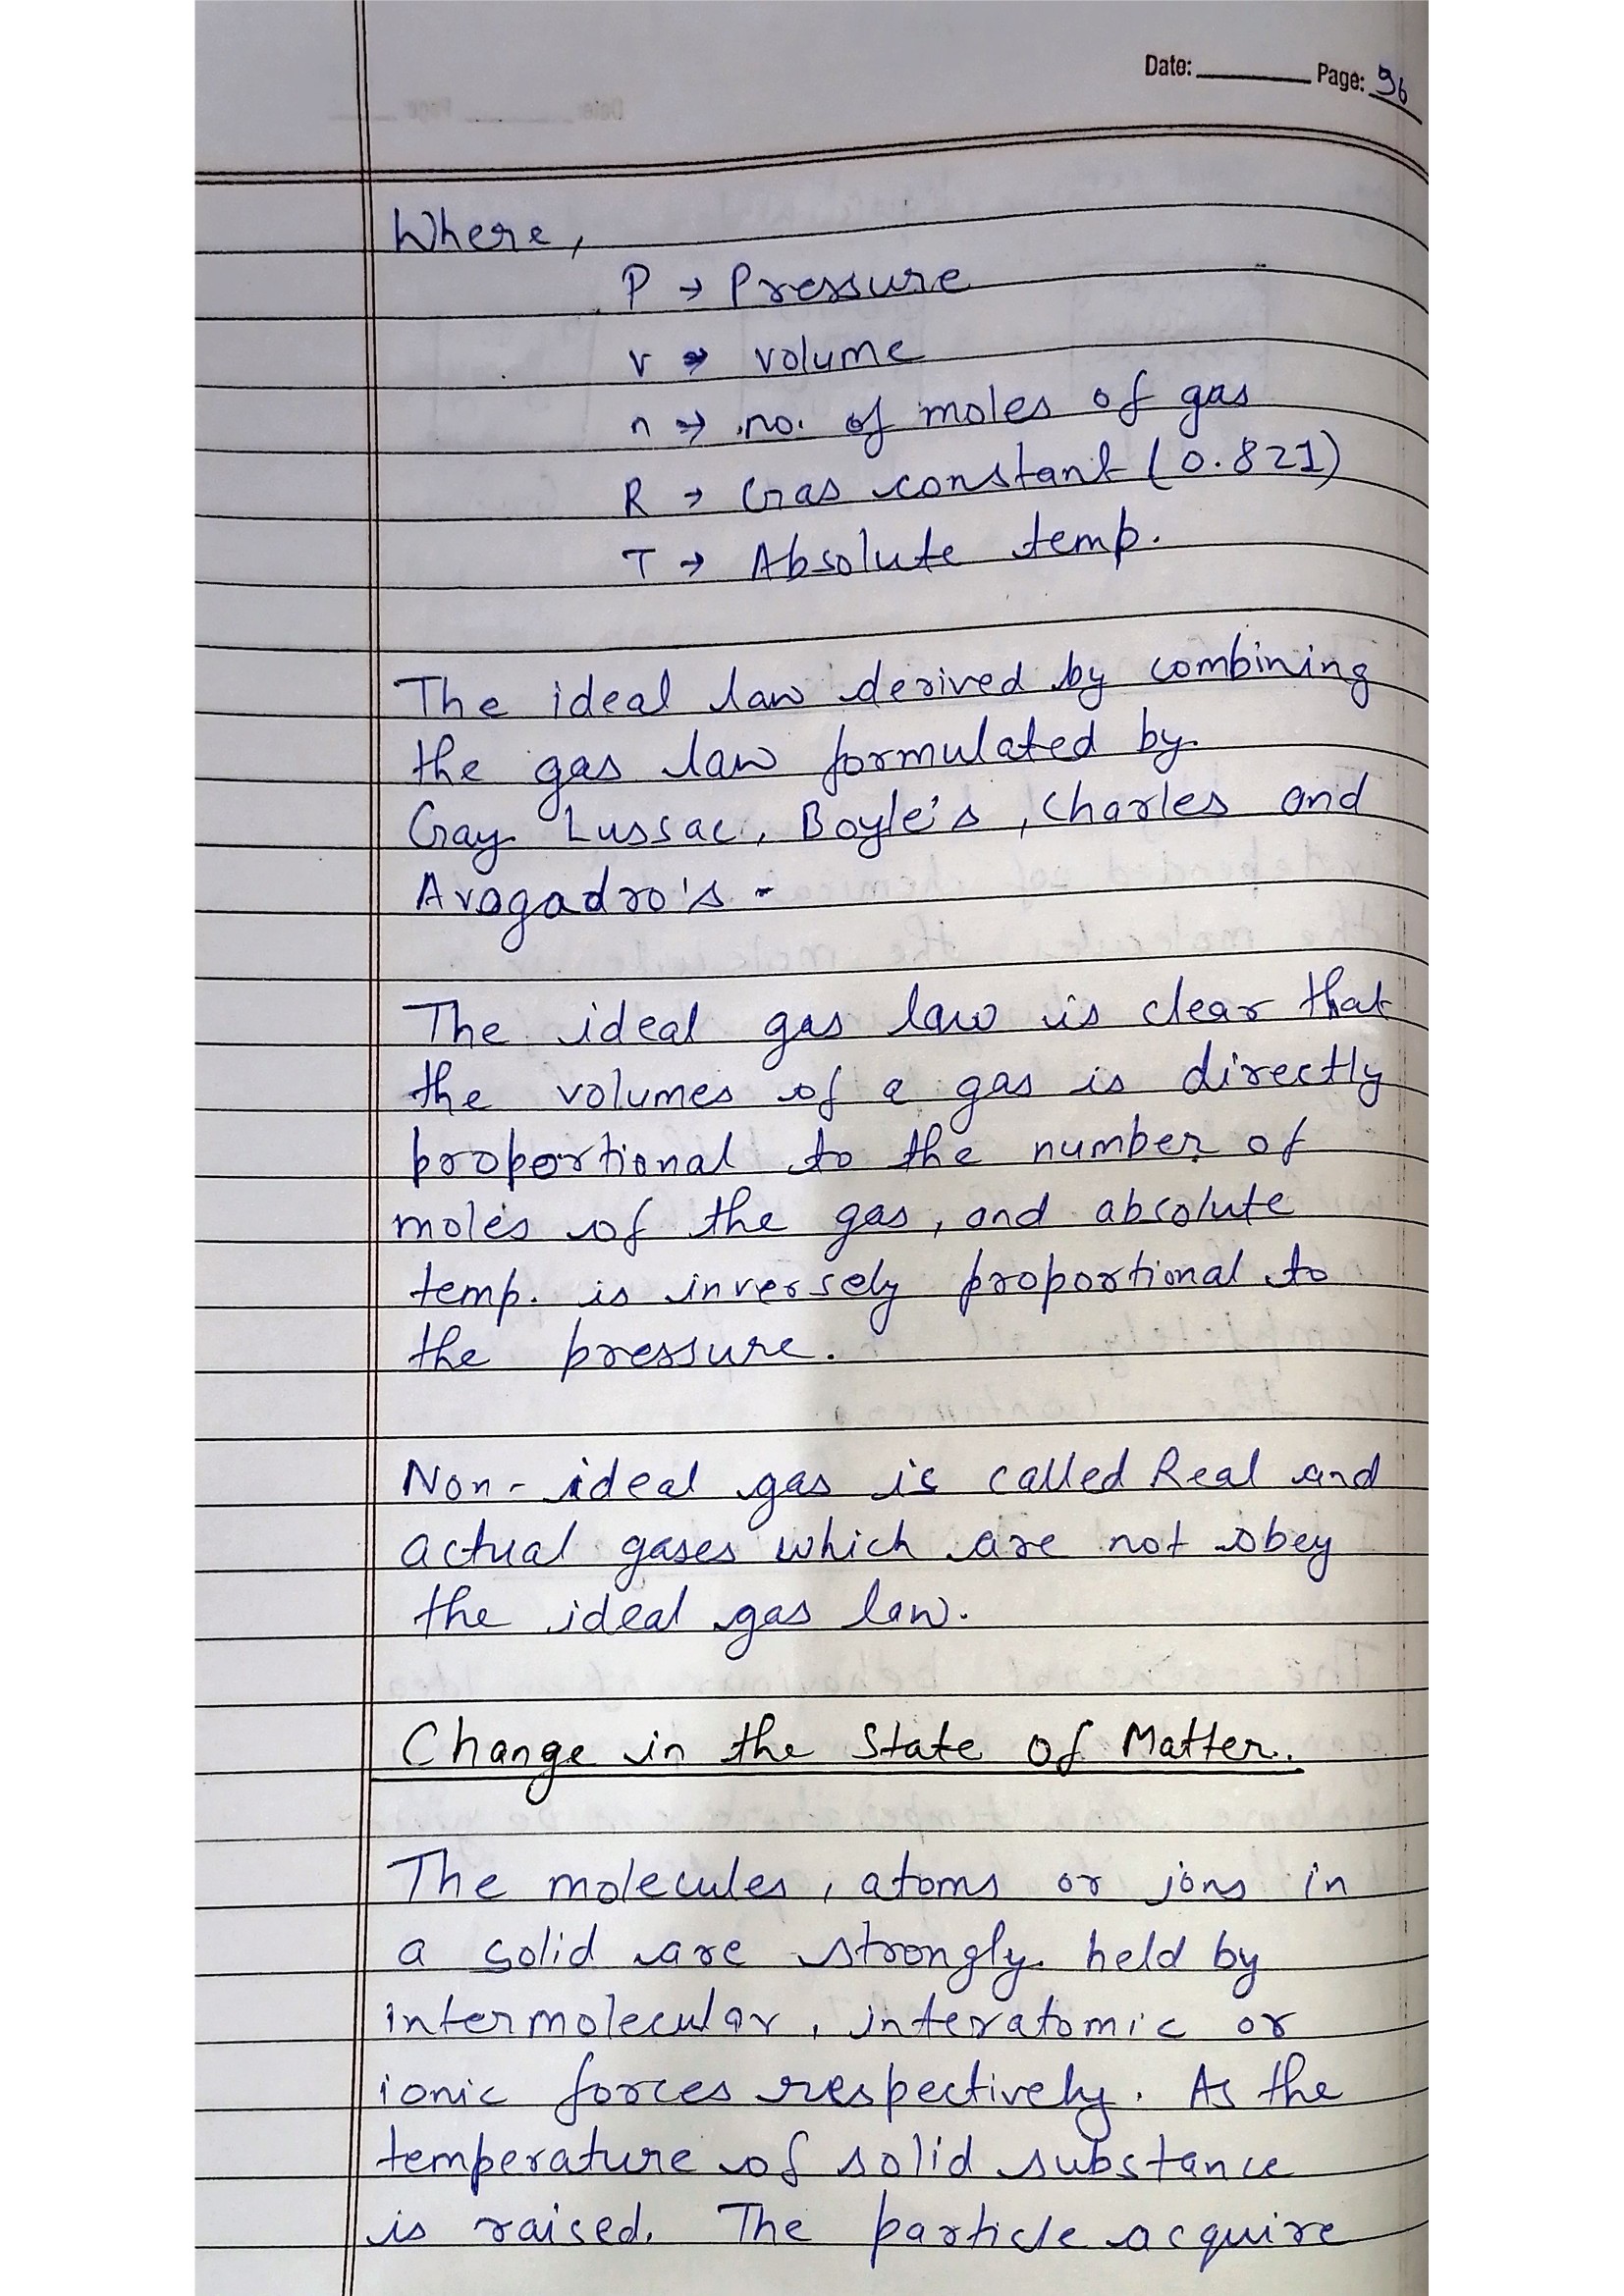 Date: Page: 96
Where,
P → Pressure
v → volume
n → no. of moles of gas
R → Gas constant (0.821)
T → Absolute temp.
The ideal law derived by combining
the gas law formulated by
Gay Lussac, Boyle's, Charles and
Avagadro's -
The ideal gas law is clear that
the volumes of a gas is directly
proportional to the number of
moles of the gas, and absolute
temp. is inversely proportional to
the pressure.
Non-ideal gas is called Real and
actual gases which are not obey
the ideal gas law.
Change in the State Of Matter.
The molecules, atoms or ions in
a solid are strongly held by
intermolecular, interatomic or
ionic forces respectively. As the
temperature of solid substance
is raised. The particle acquire